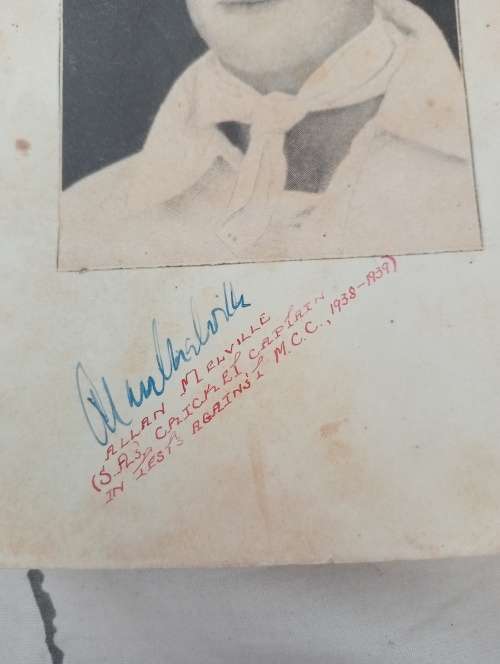 Alan Melville
ALLAN MELVILLE
(S.A'S. CRICKET CAPTAIN
IN TESTS AGAINST M.C.C., 1938-1939)